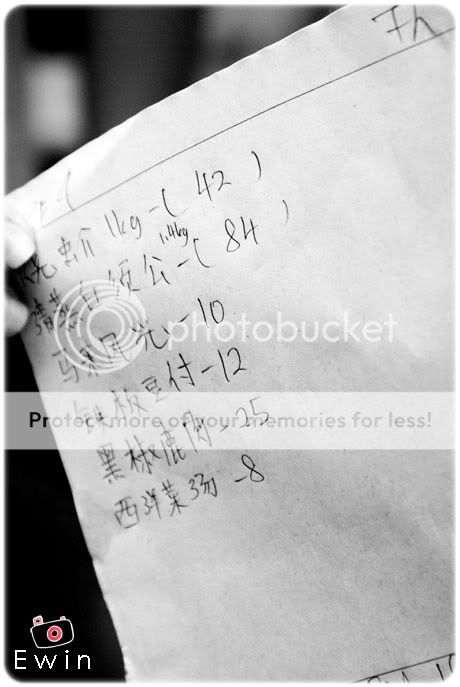 7h
烧虫介 1kg -( 42 )
1.4kg
饭公 -( 84 )
马来风光 -10
铁板豆付 -12
黑椒鹿肉 -25
西洋菜汤 -8
photobucket
Protect more of your memories for less!
Ewin